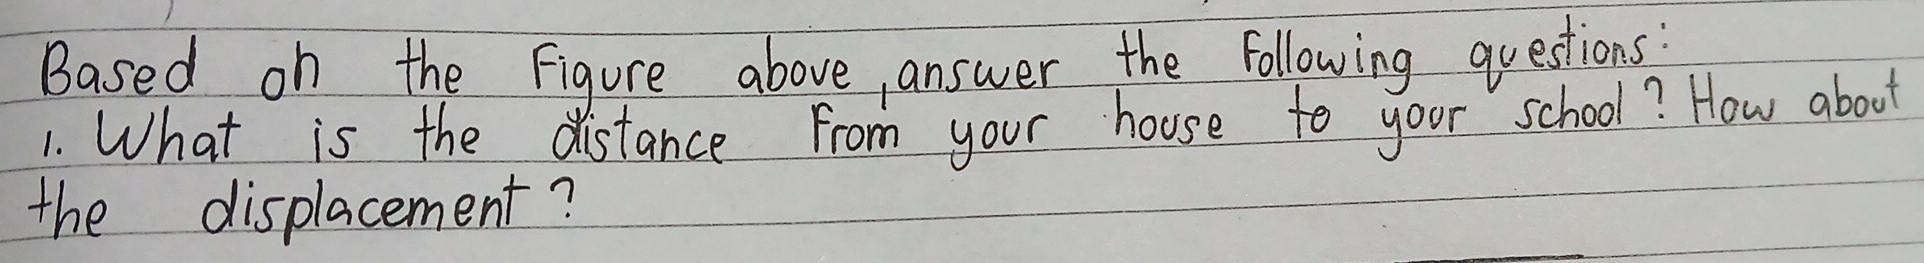 Based on the Figure above, answer the Following questions:
1. What is the distance From your house to your school? How about
the displacement?